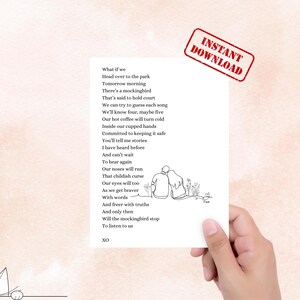 INSTANT
DOWNLOAD
What if we
Head over to the park
Tomorrow morning
There's a mockingbird
That's said to hold court
We can try to guess each song
We'll know four, maybe five
Our hot coffee will turn cold
Inside our cupped hands
Committed to keeping it safe
You'll tell me stories
I have heard before
And can't wait
To hear again
Our noses will run
That childish curse
Our eyes will too
As we get braver
With words
And freer with truths
And only then
Will the mockingbird stop
To listen to us
XO